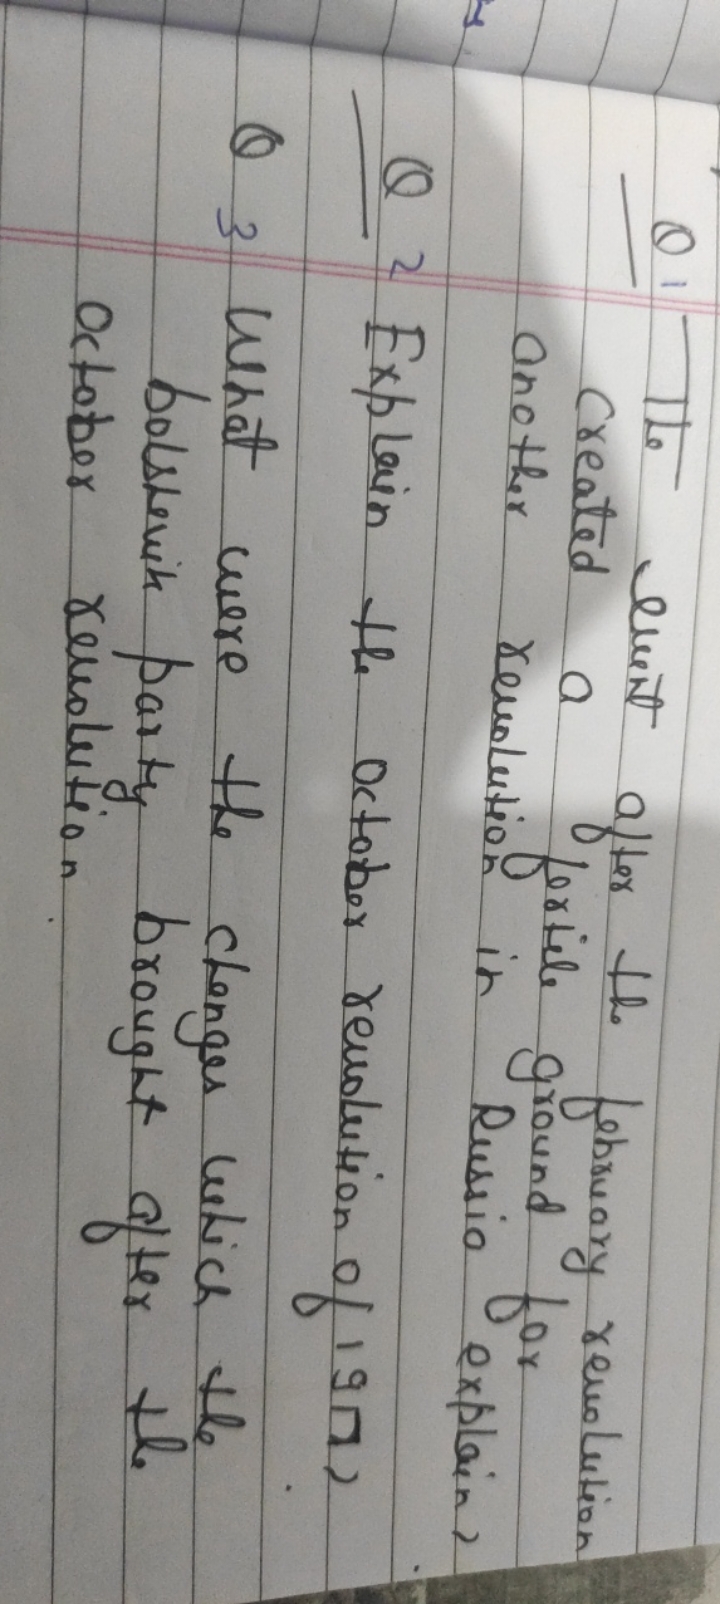 Q 1 The event after the february revolution
created a fertile ground for
another revolution in Russia explain?
Q 2 Explain the October revolution of 1917?
Q 3 What were the changes which the
bolshevik party brought after the
October revolution.